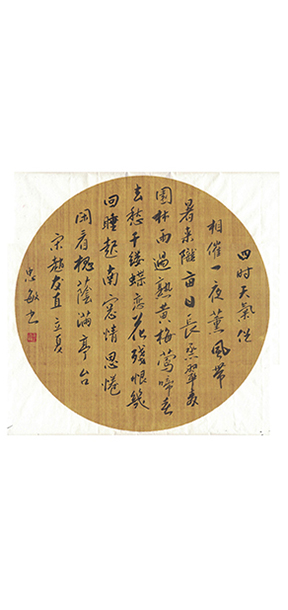 四时天氣促
相催一夜薰風带
暑来隴亩日長蒸翠麦
園林雨過熟黄梅莺啼春
去愁千縷蝶恋花残恨幾
回睡起南窗情思倦
闲看槐蔭满亭台
宋趙友直立夏
忠敏书